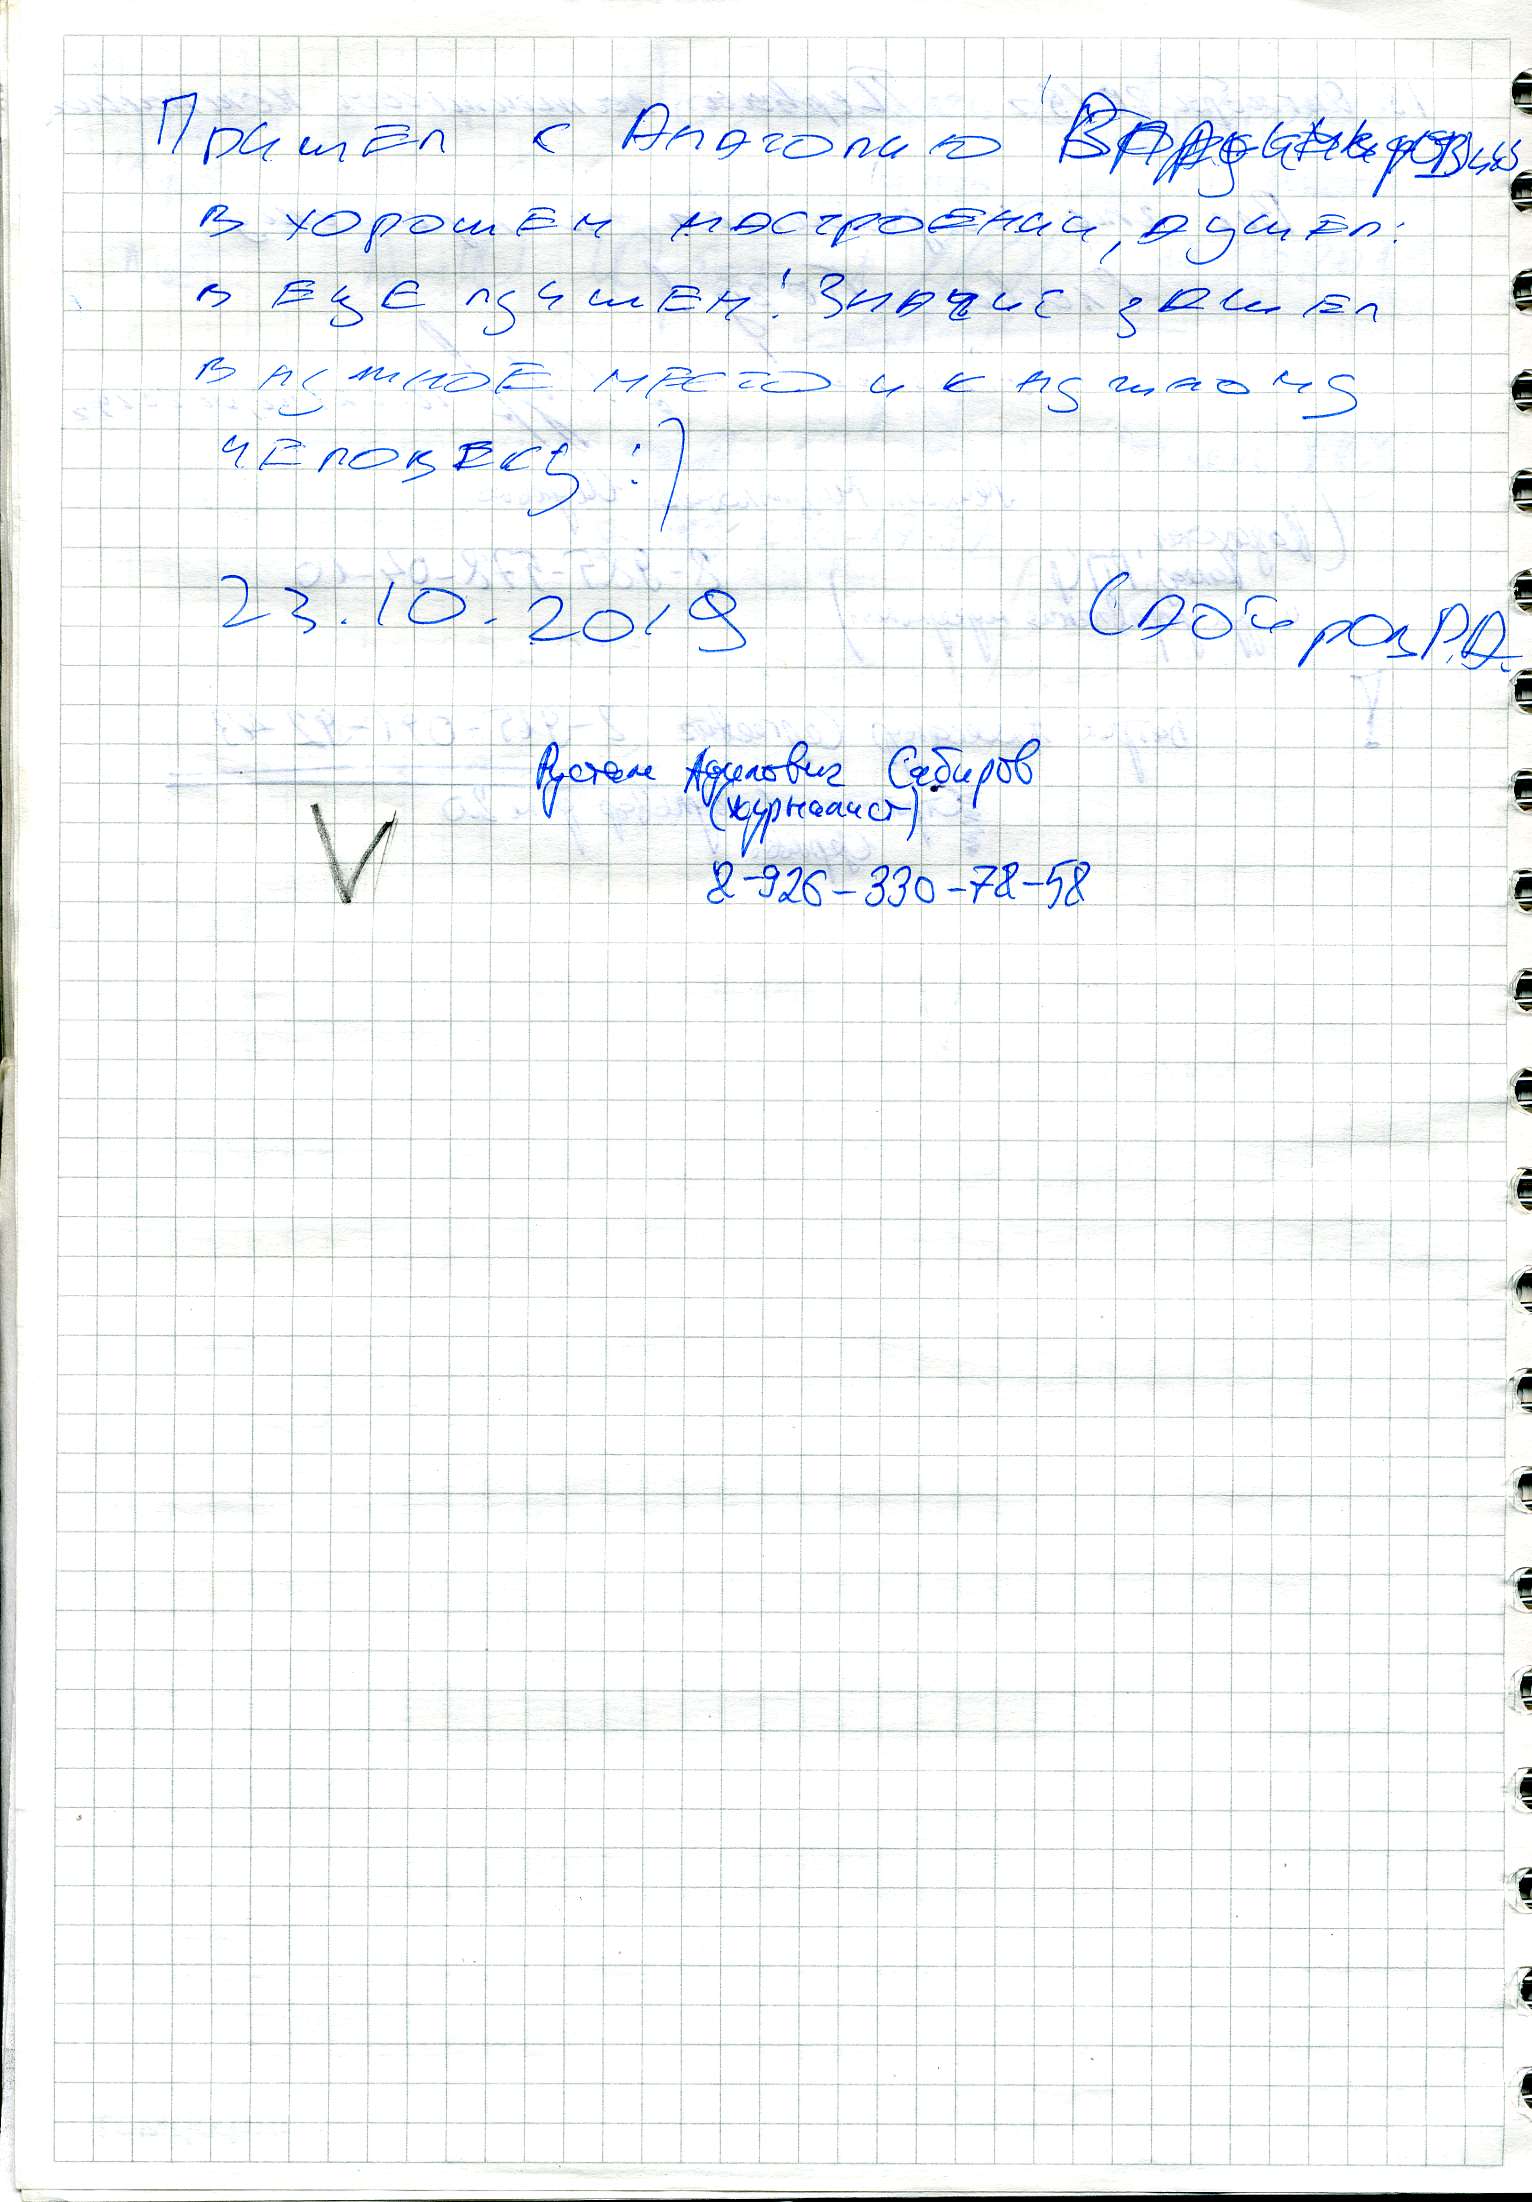 Пришел к Анатолию
в хорошем настроении, а ушел:
в еще лучшем! Значит зашел
в нужное место и к нужному
человеку :)
23.10.2019 Сабиров Р.А.
Рустам Адилович Сабиров
(журналист)
8-926-330-78-58
V